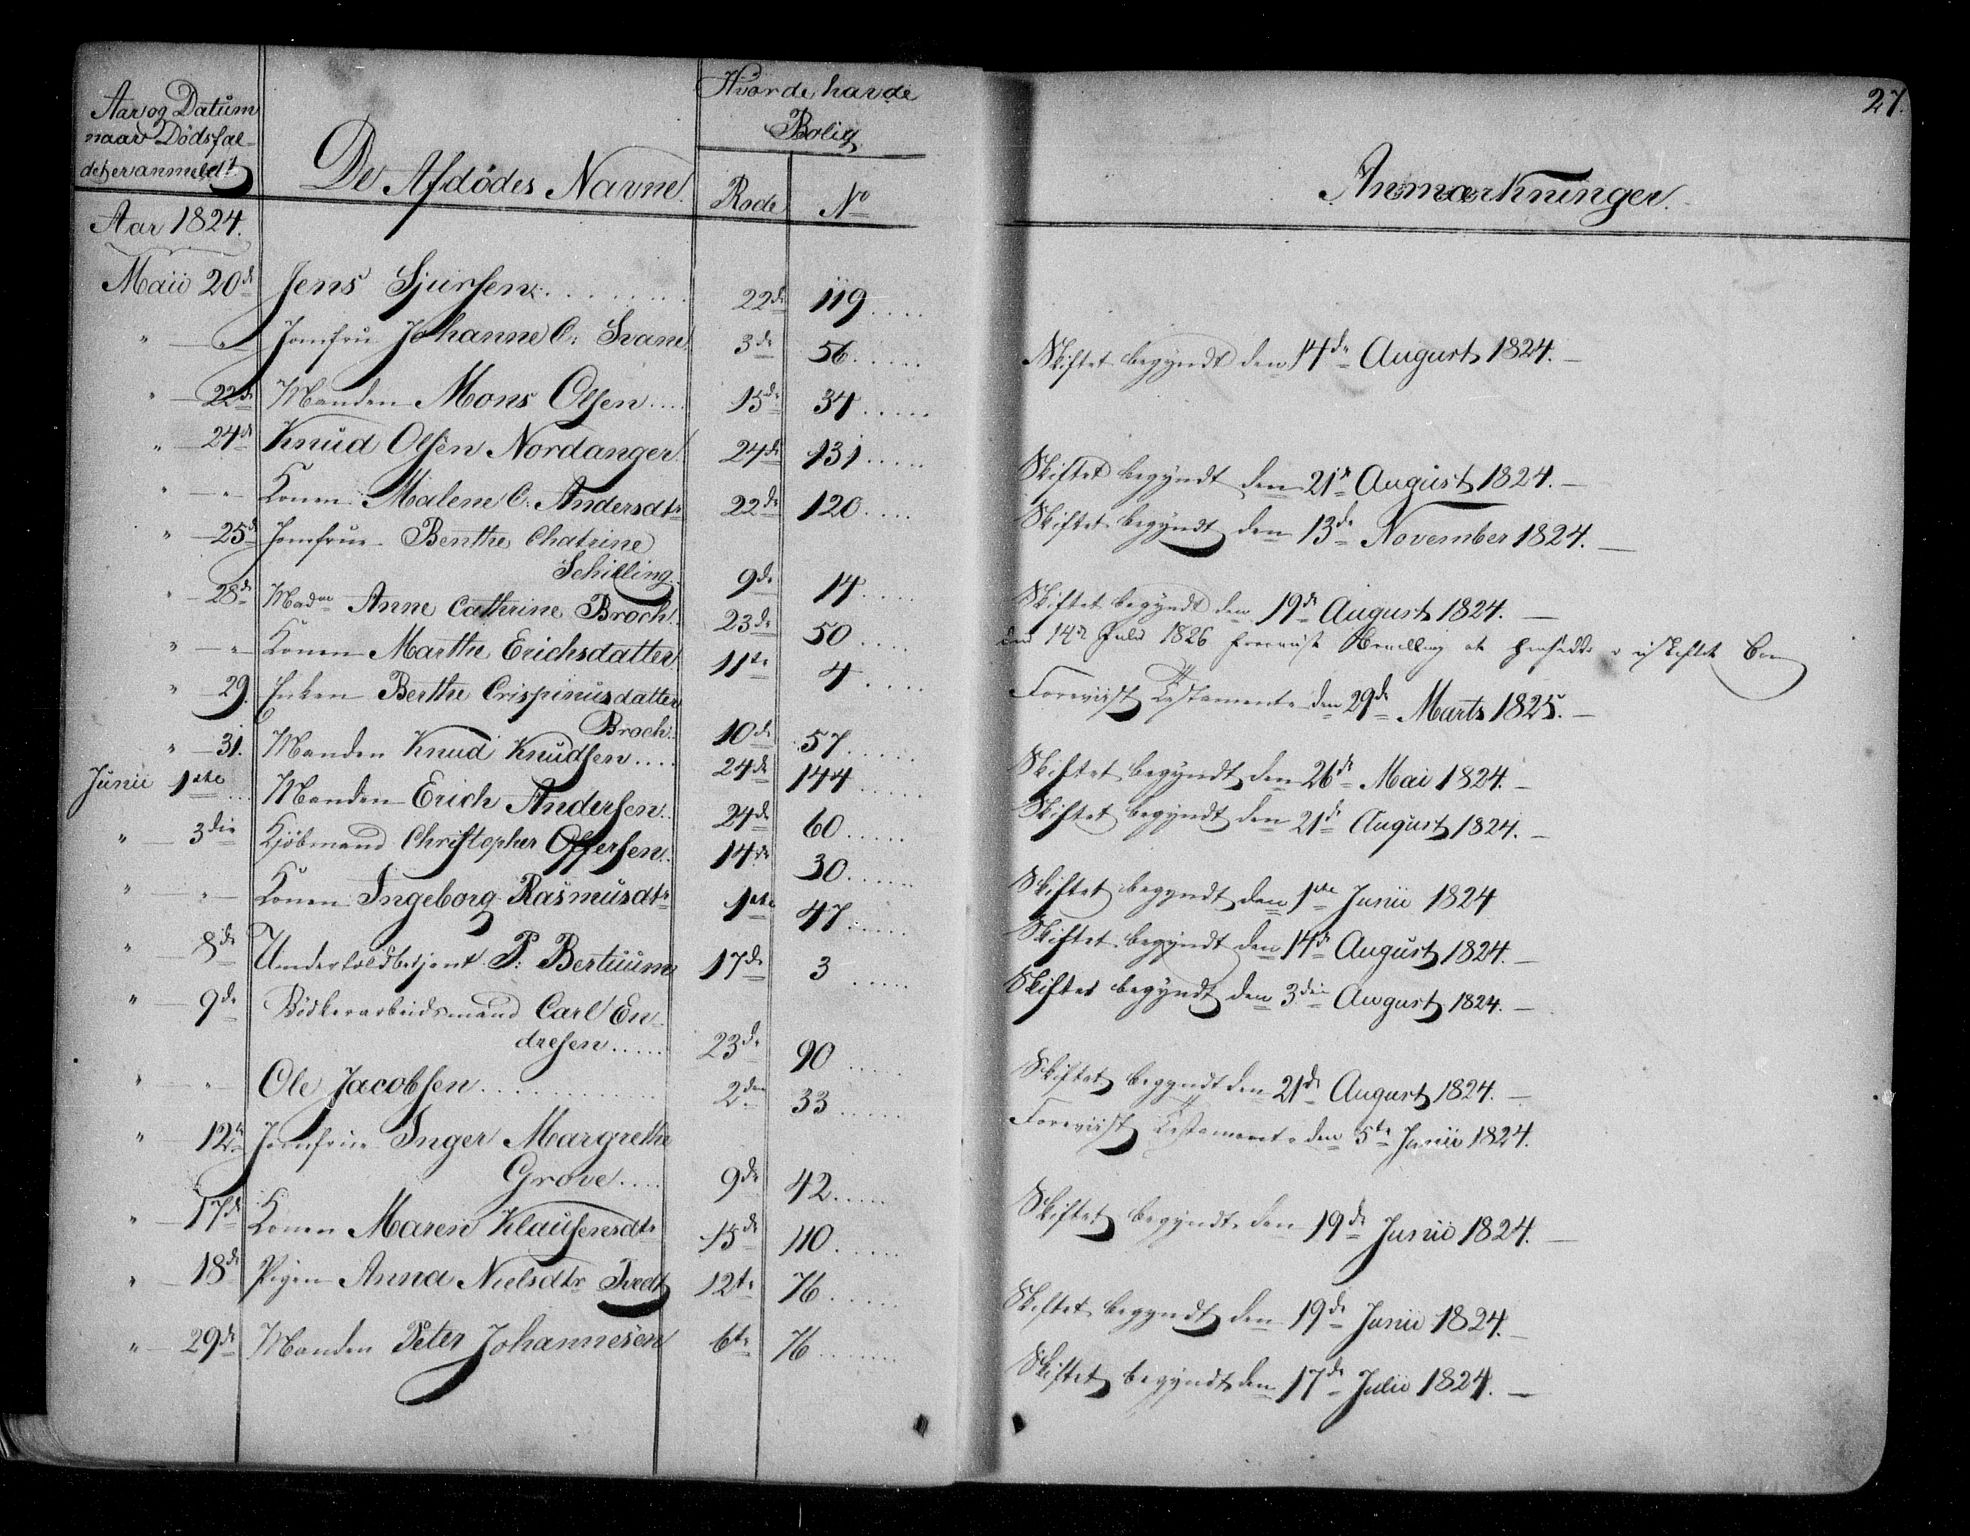 Aar og Datum
naar Dødsfal-
det er anmeldt
De Afdødes Navne.
Hvor de havde
Bolig.
Rode No
Aar 1824.
Maii 20de Jens Sjursen. 22de 119
" — " Jomfru Johanne C: Svane 3de 56
" — 22de Manden Mons Olsen 15de 34
" — 24de Knud Olsen Nordanger 24de 131
" — " Konen Malene C. Andersdtr 22de 120
" — 25de Jomfrue Benthe Chatrine
Schilling 9de 14
" — 28de Madme Anne Cathrine Broch. 23de 50
" — " Konen Marthe Erichsdatter 11te 4
" — 29. Enken Berthe Crispinusdatter
Broch. 10de 57
" — 31. Manden Knud Knudsen 24de 144
Junii 1ste Manden Erich Andersen 24de 60
" — 3die Kjöbmand Christopher Offersen 14de 30
" — " Konen Ingeborg Rasmusdtr 1ste 47
" 8de Undertoldbetjent P: Bertuum 17de 3
" — 9de Bödkerarbeidsmand Carl En-
dresen 23de 90
" — " Ole Jacobsen 2den 33
" — 12te Jomfrue Inger Margrethe
Grove 9de 42
" — 17de Konen Maren Klausensdtr 15de 110
" — 18de Pigen Anna Nielsdtr Tvedt 12te 76
" — 29de Manden Peter Johannesen 6te 76
27.
Anmærkninger.
Skiftet begyndt den 14de August 1824. —
Skiftet begyndt den 21de August 1824. —
Skiftet begyndt den 13de November 1824. —
Skiftet begyndt den 19de August 1824. —
den 14de Juli 1826 foreviist Bevilling at hensidde i uskiftet Boe
Foreviist Testament den 29de Marts 1825. —
Skiftet begyndt den 26de Mai 1824. —
Skiftet begyndt den 21de August 1824. —
Skiftet begyndt den 1ste Junii 1824
Skiftet begyndt den 14de August 1824. —
Skiftet begyndt den 3die August 1824. —
Skiftet begyndt den 21de August 1824. —
Foreviist Testament den 5te Junii 1824.
Skiftet begyndt den 19de Junii 1824. —
Skiftet begyndt den 19de Junii 1824. —
Skiftet begyndt den 17de Julii 1824. —